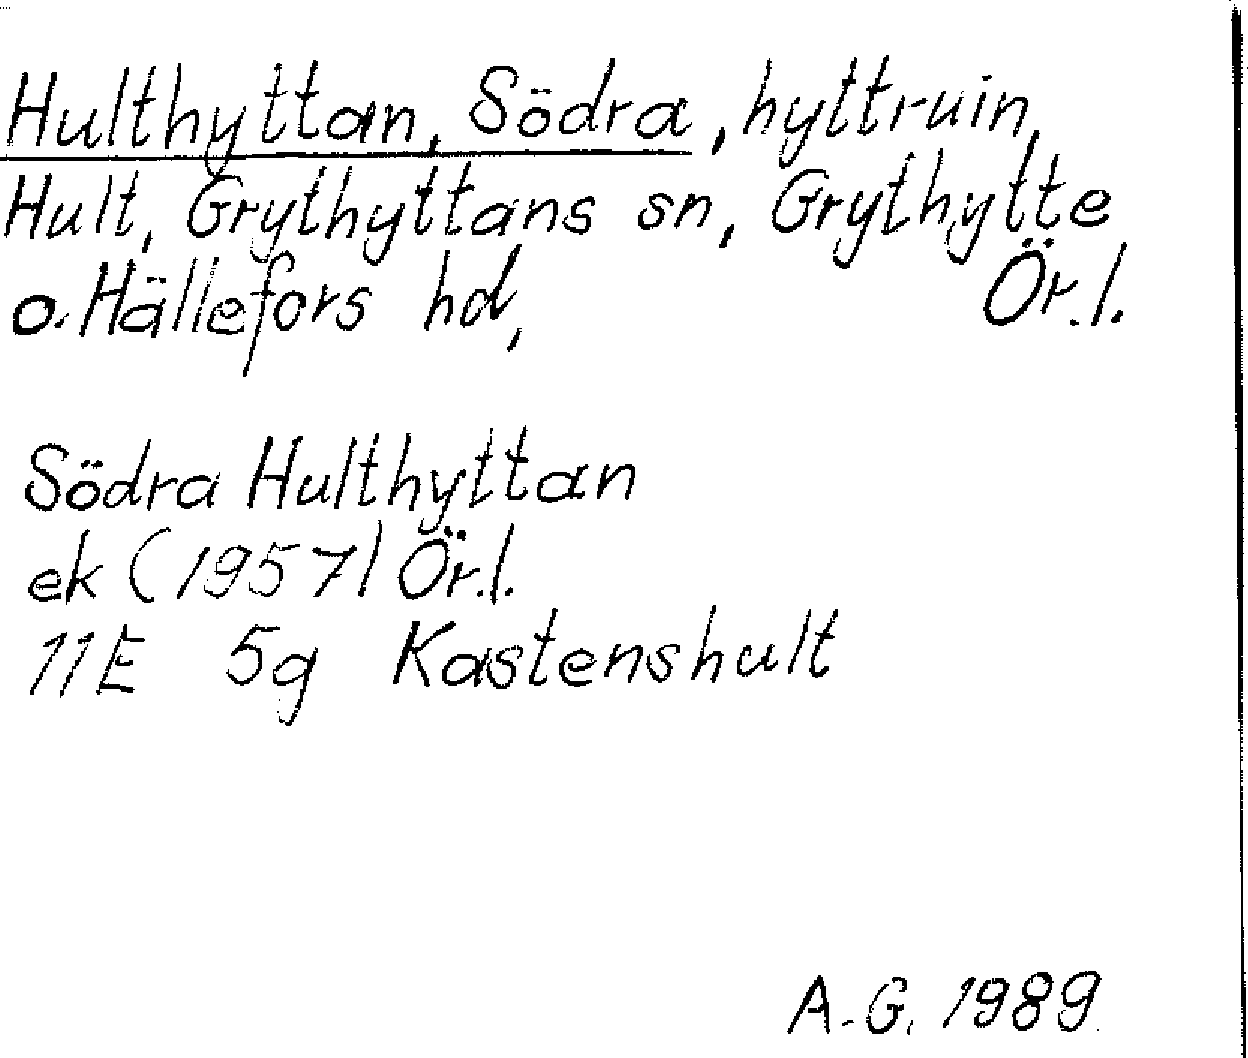 Hulthyttan, Södra, hyttruin,
Hult, Grythyttans sn, Grythytte
o. Hällefors hd, Ör.l.
Södra Hulthyttan
ek (1957) Ör.l.
11E 5g Kastenshult
A.G. 1989